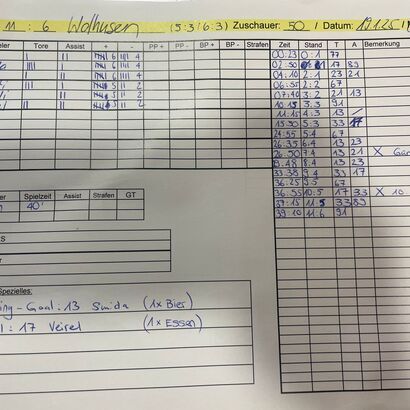 11 : 6 Wolhusen (5:3/6:3) Zuschauer: 50 / Datum: 19.1.25
Tore Assist + - PP + PP - BP + BP - Strafen Zeit Stand T A Bemerkung
00:23 0:1 77
02:50 17 83
04:10 2:1 23 21
06:55 2:2 67
07:40 3:2 21 13
10:15 3:3 91
11:15 4:3 13
15:30 5:3 33 17
24:55 5:4 67
26:35 6:4 13 23
26:50 7:4 13 21 X
8:4 13 23
33:38 9:4 33 17
36:25 9:5 67
36:55 10:5 17 33 X 10
37:15 11:5 33 83
39:10 11:6 91
Spielzeit Assist Strafen GT
40'
Spezielles:
Goal: 13 Smida (1x Bier)
: 17 Veirel (1x Essen)